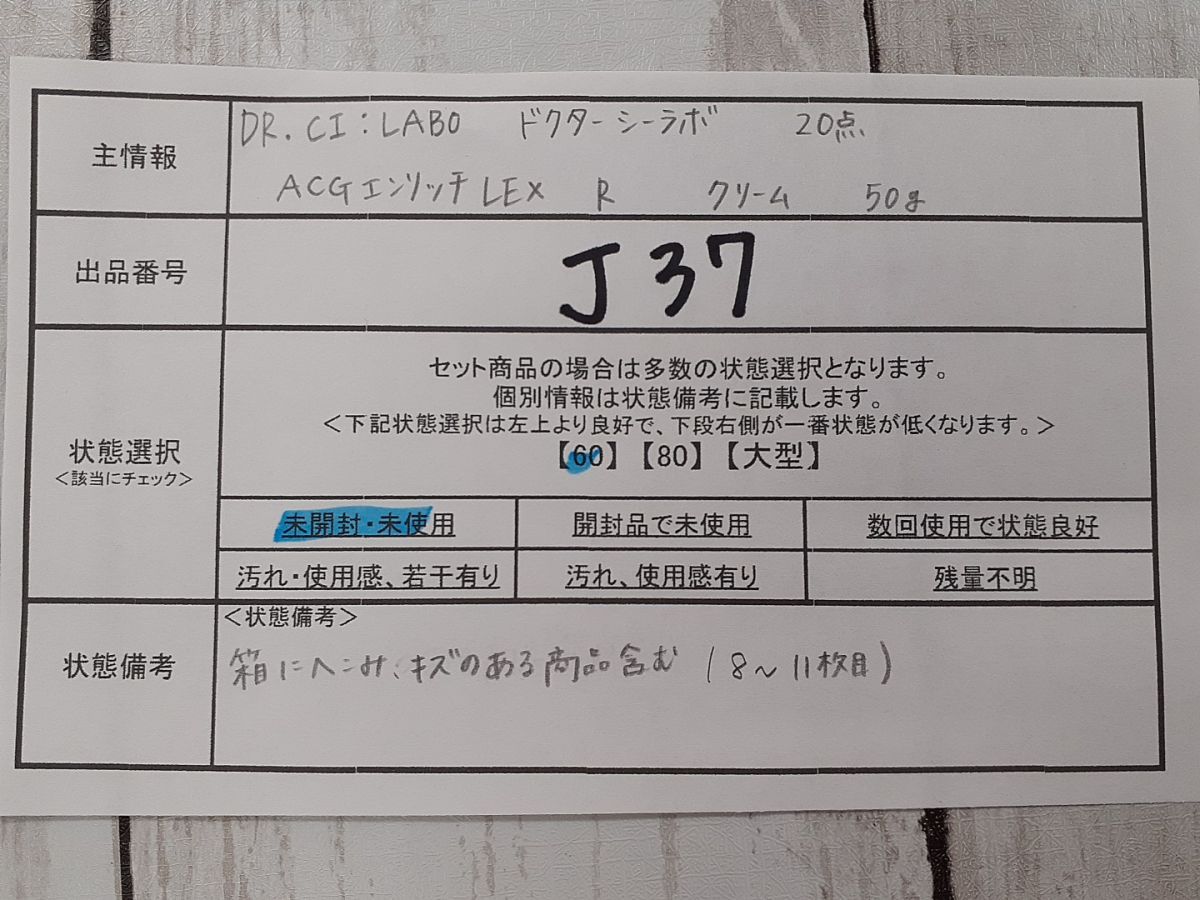 主情報
DR.CI:LABO ドクターシーラボ 20点
ACGエンリッチLEX R クリーム 50g
出品番号
J37
状態選択
<該当にチェック>
セット商品の場合は多数の状態選択となります。
個別情報は状態備考に記載します。
<下記状態選択は左上より良好で、下段右側が一番状態が低くなります。>
【60】【80】【大型】
未開封・未使用 開封品で未使用 数回使用で状態良好
汚れ・使用感、若干有り 汚れ、使用感有り 残量不明
状態備考
<状態備考>
箱にヘこみ、キズのある商品含む (8~11枚目)